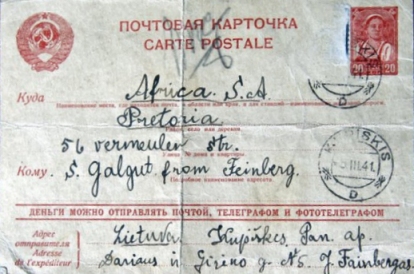 ПОЧТОВАЯ КАРТОЧКА
CARTE POSTALE
20 20
Куда
Africa S.A
Pretoria
56 vermeulen str.
Кому
S. Galgut from Feinberg.
KUPISKIS
III.41
D
ДЕНЬГИ МОЖНО ОТПРАВЛЯТЬ ПОЧТОЙ, ТЕЛЕГРАФОМ И ФОТОТЕЛЕГРАФОМ
Адрес
отправителя
Adresse de
l'expéditeur
Lietuva. Kupiškes, Pan. ap.
Dariaus ir Girėno g. No. J. Fainbergas